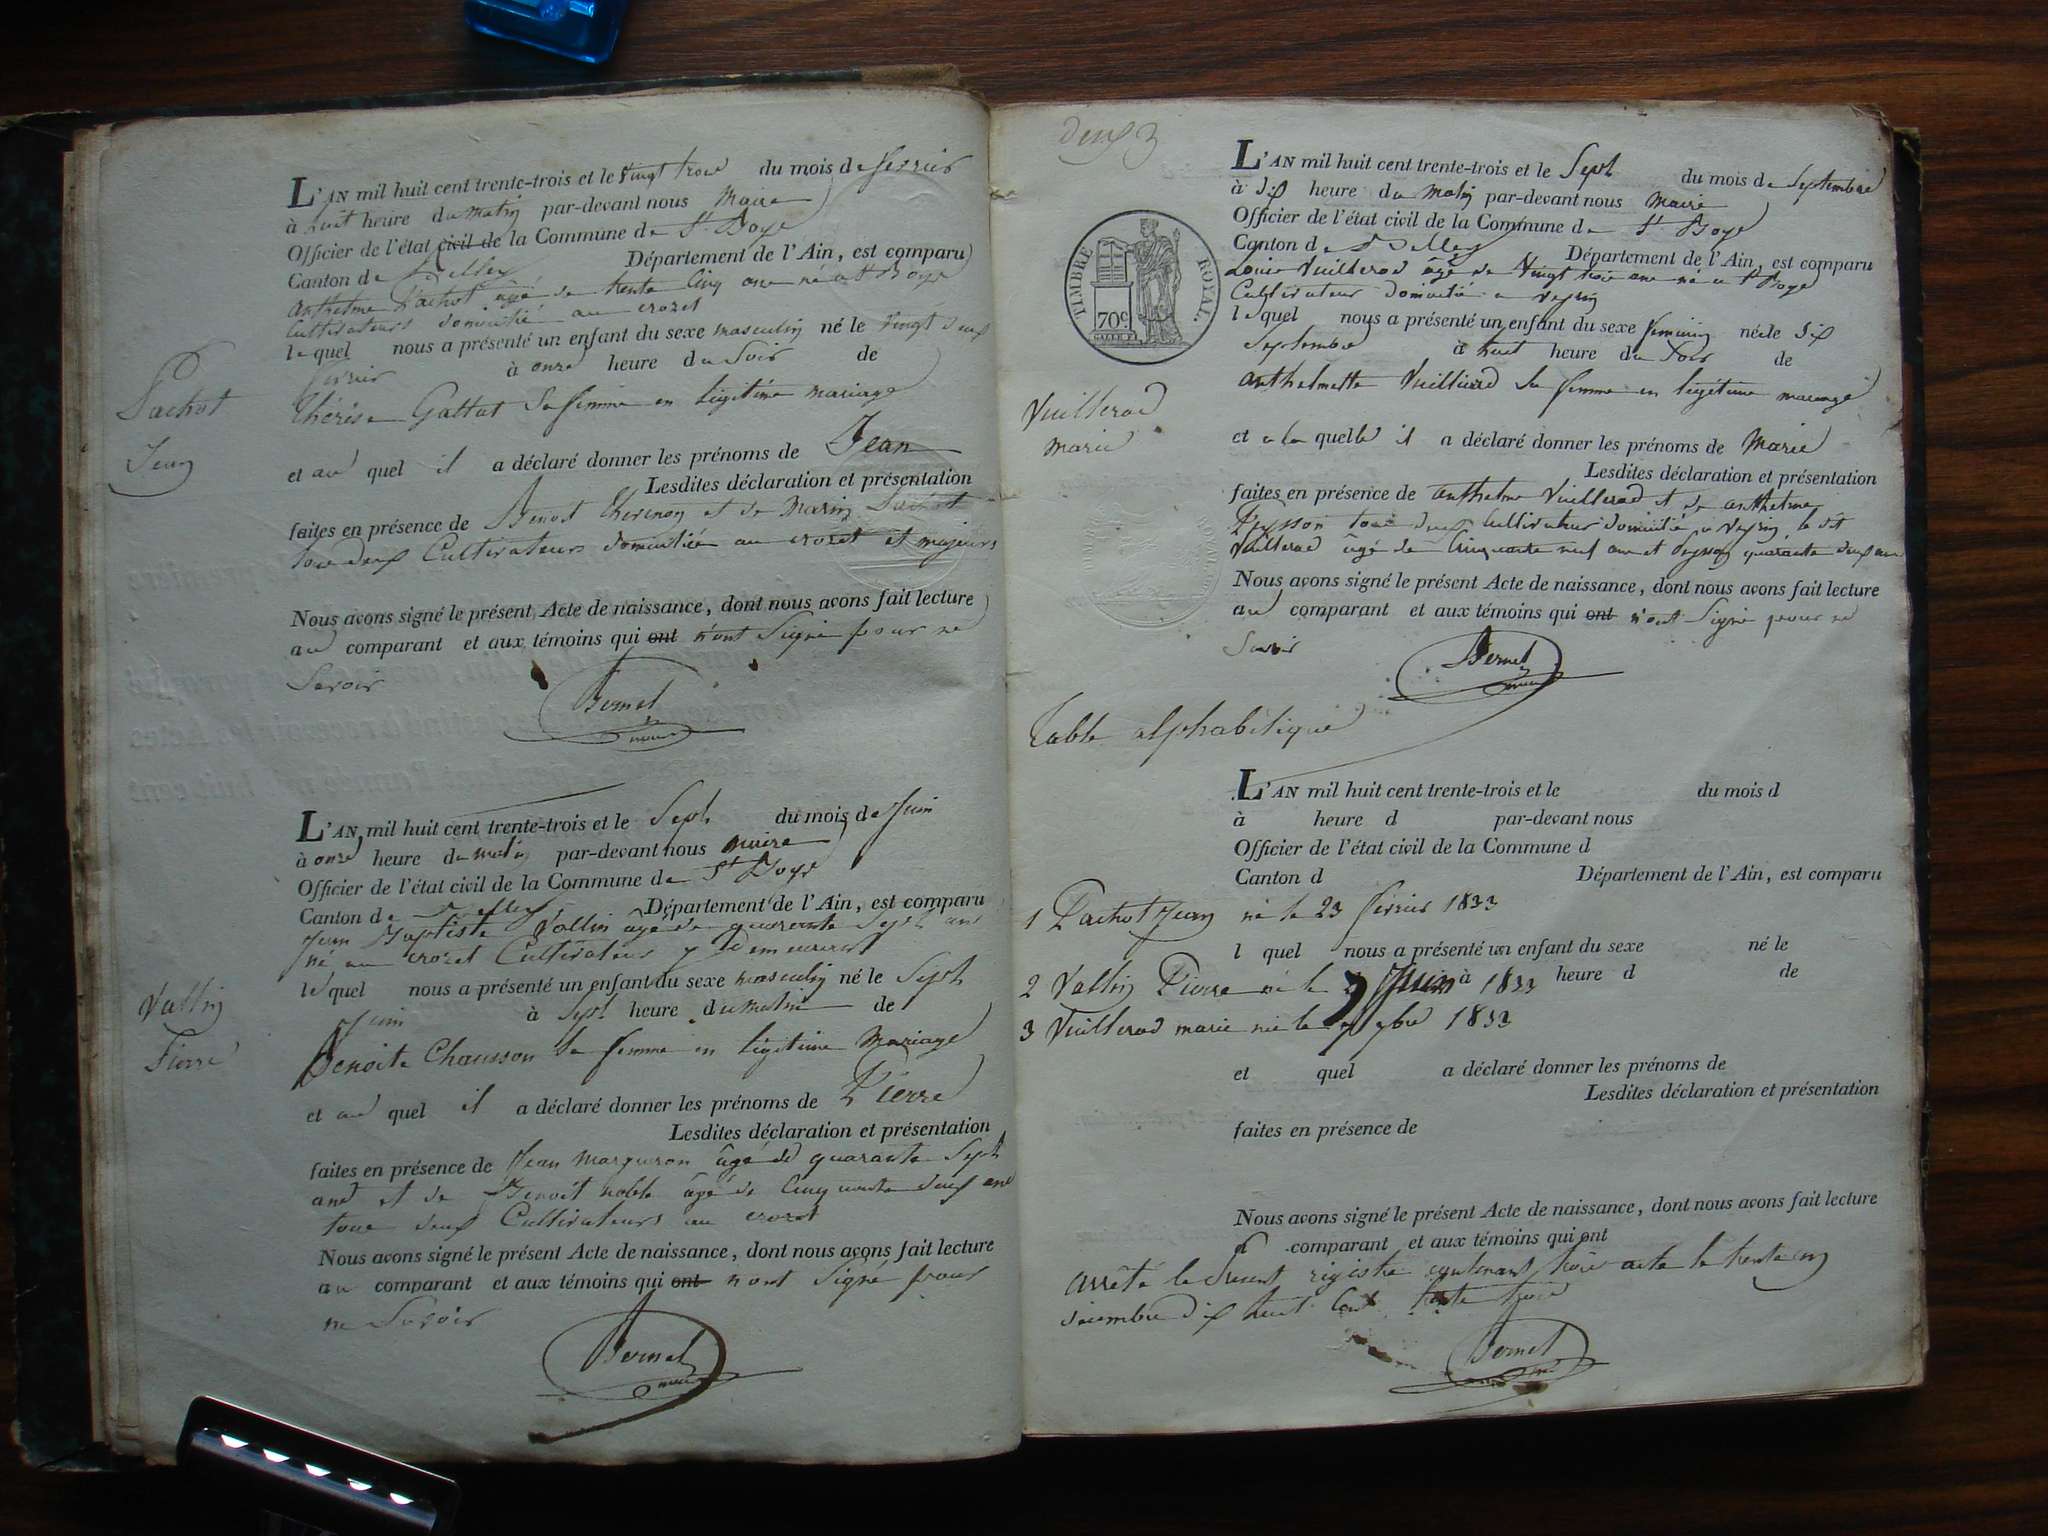 Pachot
Jean
L'AN mil huit cent trente-trois et le vingt trois du mois de fevrier
à huit heure du matin par-devant nous Maire
Officier de l'état civil de la Commune de St Boys
Canton de Belley Département de l'Ain, est comparu
anthelme Pachot âgé de trente Cinq ans né a St Boys
Cultivateurs domicilié au crozet
le quel nous a présenté un enfant du sexe masculin né le vingt deux
fevrier à onze heure du Soir de
thérèse Gallut Sa femme en légitime mariage
et au quel il a déclaré donner les prénoms de Jean
Lesdites déclaration et présentation
faites en présence de Benoit et de Marin Pachot
tous deux Cultivateurs domiciliés au crozet et majeurs
Nous avons signé le présent Acte de naissance, dont nous avons fait lecture
au comparant et aux témoins qui ont n'ont Signé pour ne
Savoir
Bernel
maire
Vallin
Pierre
L'AN mil huit cent trente-trois et le Sept du mois de Juin
à onze heure du matin par-devant nous maire
Officier de l'état civil de la Commune de St Boys
Canton de Belley Département de l'Ain, est comparu
Jean Baptiste Vallin âgé de quarante Sept ans
né au crozet Cultivateur y demeurant
le quel nous a présenté un enfant du sexe masculin né le Sept
Juin à Sept heure du matin de
Benoite Chausson Sa femme en légitime Mariage
et au quel il a déclaré donner les prénoms de Pierre
Lesdites déclaration et présentation
faites en présence de Jean Marguron âgé de quarante Sept
ans et de Benoit noble âgé de Cinquante deux ans
tous deux Cultivateurs au crozet
Nous avons signé le présent Acte de naissance, dont nous avons fait lecture
au comparant et aux témoins qui ont n'ont Signé pour
ne Savoir
Bernel
maire
TIMBRE ROYAL.
70c
Vuillerod
marie
L'AN mil huit cent trente-trois et le Sept du mois de Septembre
à dix heure du matin par-devant nous Maire
Officier de l'état civil de la Commune de St Boys
Canton de Belley Département de l'Ain, est comparu
Louis Vuillerod âgé de Vingt trois ans né a St Boys
Cultivateur domicilié a veyrin
le quel nous a présenté un enfant du sexe feminin née le Six
Septembre à huit heure du Soir de
anthelmette Vuillierd Sa femme en légitime mariage
et a la quelle il a déclaré donner les prénoms de Marie
Lesdites déclaration et présentation
faites en présence de anthelme Vuillerod et de anthelme
Peysson tous deux Cultivateur domicilié a veyrin le dit
Vuillerod âgé de Cinquante neuf ans et Peysson quarante deux ans
Nous avons signé le présent Acte de naissance, dont nous avons fait lecture
au comparant et aux témoins qui ont n'ont Signé pour ne
Savoir
Bernel
maire
table alphabétique
L'AN mil huit cent trente-trois et le du mois d
à heure d par-devant nous
Officier de l'état civil de la Commune d
Canton d Département de l'Ain, est comparu
1 Pachot Jean né le 23 fevrier 1833
l quel nous a présenté un enfant du sexe né le
à heure d de
2 Vallin Pierre né le 7 Juin 1833
3 Vuillerod marie née le 7 7bre 1833
et quel a déclaré donner les prénoms de
Lesdites déclaration et présentation
faites en présence de
Nous avons signé le présent Acte de naissance, dont nous avons fait lecture
comparant et aux témoins qui ont
arrêté le présent registre contenant trois acte le trente un
décembre dix huit Cent trente trois
Bernel